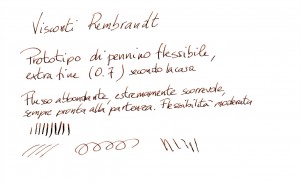 Visconti Rembrandt
Prototipo di pennino flessibile,
extra fine (0.7) secondo la casa
Flusso abbondante, estremamente scorrevole,
sempre pronta alla partenza. Flessibilità moderata